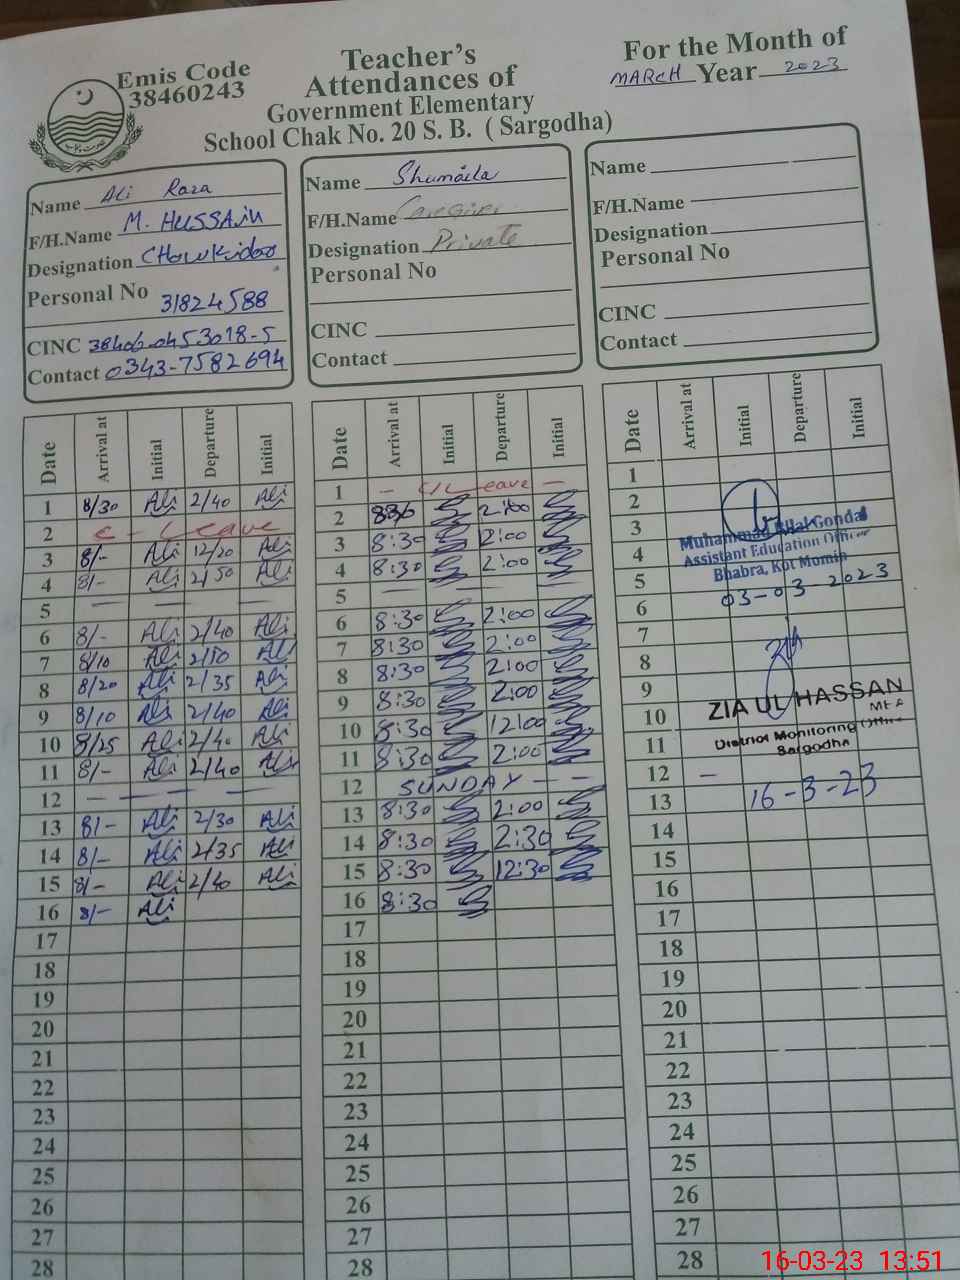 Emis Code
38460243
Teacher's
Attendances of
Government Elementary
School Chak No. 20 S. B. ( Sargodha)
For the Month of
MARCH Year 2023
Name Ali Raza
F/H.Name M. HUSSAIN
Designation Chowkidar
Personal No
31824588
CINC 38406-0453018-5
Contact 0343-7582694
Name Shumaila
F/H.Name Care Giver
Designation Private
Personal No
CINC
Contact
Name
F/H.Name
Designation
Personal No
CINC
Contact
Date Arrival at Initial Departure Initial
1 8/30 Ali 2/40 Ali
2 C - Leave
3 8/- Ali 12/20 Ali
4 8/- Ali 2/50 Ali
5 — — —
6 8/- Ali 2/40 Ali
7 8/10 Ali 2/50 Ali
8 8/20 Ali 2/35 Ali
9 8/10 Ali 2/40 Ali
10 8/25 Ali 2/40 Ali
11 8/- Ali 2/40 Ali
12 — — — —
13 8/- Ali 2/30 Ali
14 8/- Ali 2/35 Ali
15 8/- Ali 2/40 Ali
16 8/- Ali
17
18
19
20
21
22
23
24
25
26
27
28
Date Arrival at Initial Departure Initial
1 — C/Leave —
2 830 2:00
3 8:30 2:00
4 8:30 2:00
5 — — —
6 8:30 2:00
7 8:30 2:00
8 8:30 2:00
9 8:30 2:00
10 8:30 12:00
11 8:30 2:00
12 SUNDAY — —
13 8:30 2:00
14 8:30 2:30
15 8:30 12:30
16 8:30
17
18
19
20
21
22
23
24
25
26
27
28
Date Arrival at Initial Departure Initial
1
2
3
4
5
6
7
8
9
10
11
12 —
13
14
15
16
17
18
19
20
21
22
23
24
25
26
27
28
Muhammad Bilal Gondal
Assistant Education Officer
Bhabra, Kot Momin
03-03-2023
ZIA UL HASSAN
MEA
District Monitoring Officer
Sargodha
16-3-23
16-03-23 13:51